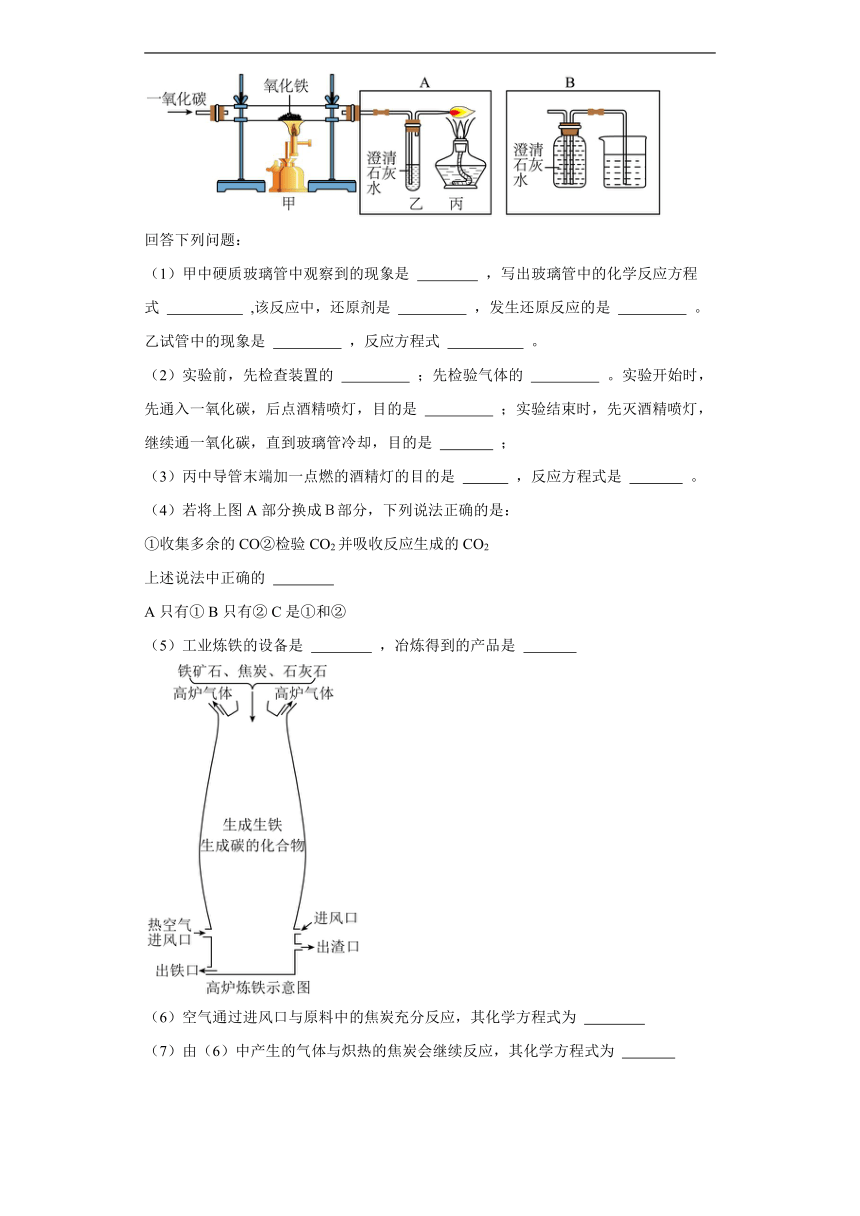 A
B
氧化铁
一氧化碳
澄清
石灰
水
甲
乙
丙
澄清
石灰
水
回答下列问题：
（1）甲中硬质玻璃管中观察到的现象是 ________ ，写出玻璃管中的化学反应方程
式 __________ ,该反应中，还原剂是 _________ ，发生还原反应的是 _________ 。
乙试管中的现象是 _________ ，反应方程式 __________ 。
（2）实验前，先检查装置的 _________ ；先检验气体的 _________ 。实验开始时，
先通入一氧化碳，后点酒精喷灯，目的是 _________ ；实验结束时，先灭酒精喷灯，
继续通一氧化碳，直到玻璃管冷却，目的是 _______ ；
（3）丙中导管末端加一点燃的酒精灯的目的是 ______ ，反应方程式是 _______ 。
（4）若将上图 A 部分换成B部分，下列说法正确的是：
①收集多余的 CO②检验 CO₂并吸收反应生成的 CO₂
上述说法中正确的 ________
A 只有① B 只有② C 是①和②
（5）工业炼铁的设备是 ________ ，冶炼得到的产品是 _______
铁矿石、焦炭、石灰石
高炉气体 高炉气体
生成生铁
生成碳的化合物
热空气
进风口
进风口
出渣口
出铁口
高炉炼铁示意图
（6）空气通过进风口与原料中的焦炭充分反应，其化学方程式为 ________
（7）由（6）中产生的气体与炽热的焦炭会继续反应，其化学方程式为 _______